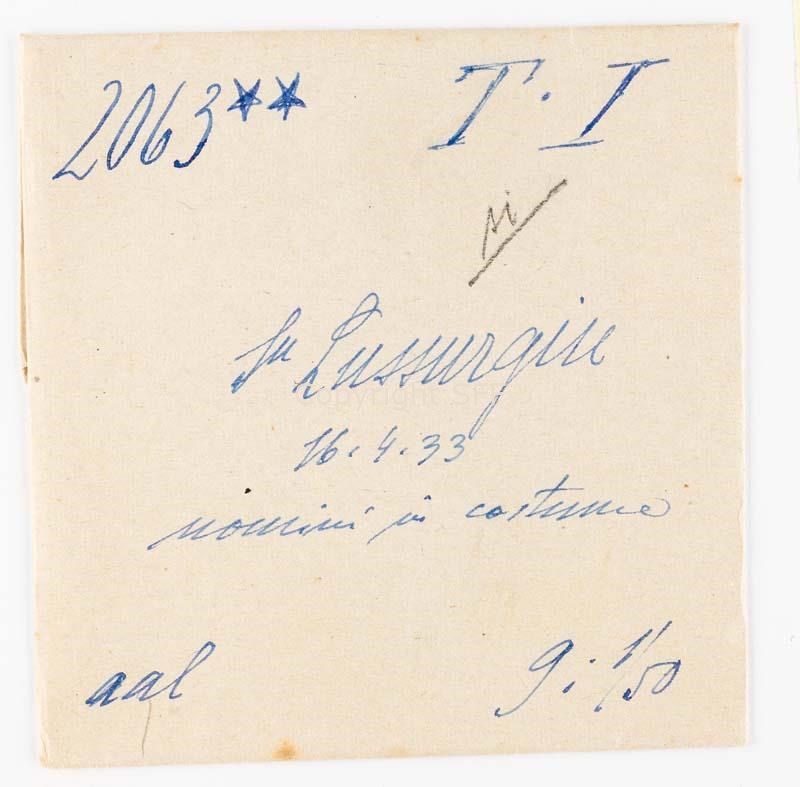 2063** T. I
si
Su Lussurgiu
16.4.33
uomini in costume
aal 9 : 1/50